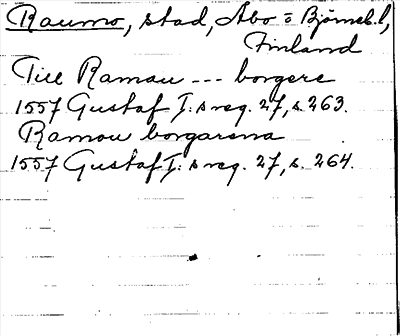 Raumo, stad, Åbo o Björneb. l,
Finland
Till Ramau --- borgere
1557 Gustaf I: s reg. 27, s. 263.
Ramou borgarena
1557 Gustaf I: s reg. 27, s. 264.